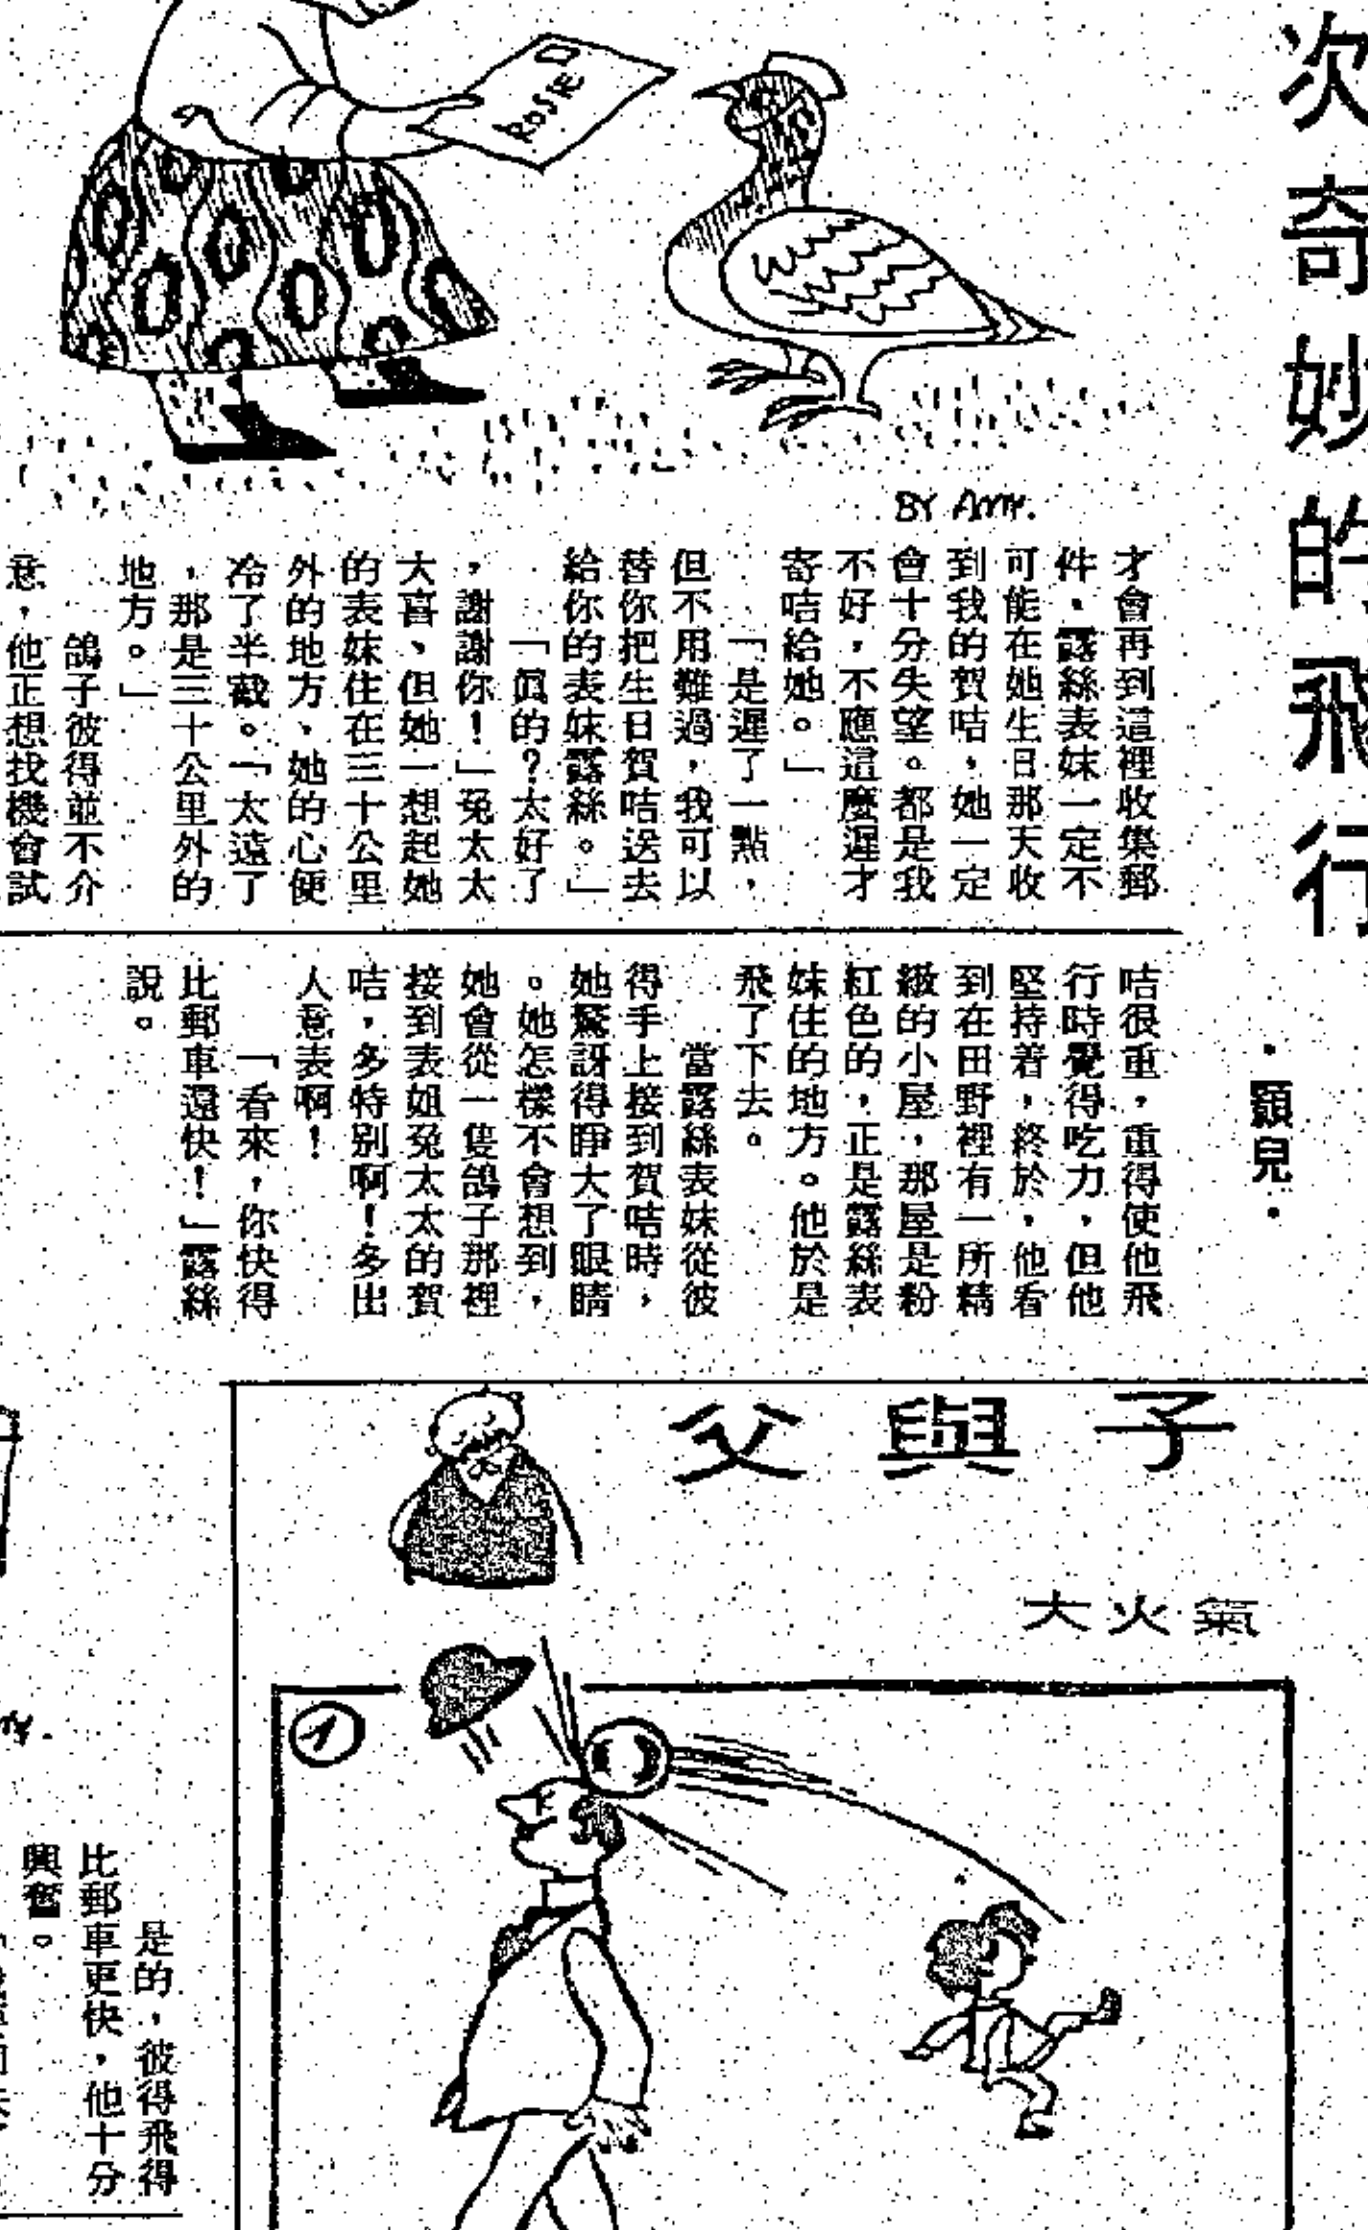 次奇妙的飛行
・穎兒・
ROSIE
BY AMY.
才會再到這裡收集郵
件，露絲表妹一定不
可能在她生日那天收
到我的賀咭，她一定
會十分失望。都是我
不好，不應這麼遲才
寄咭給她。」
「是遲了一點，
但不用難過，我可以
替你把生日賀咭送去
給你的表妹露絲。」
「眞的？太好了
，謝謝你！」兔太太
大喜、但她一想起她
的表妹住在三十公里
外的地方、她的心便
冷了半截。「太遠了
，那是三十公里外的
地方。」
鴿子彼得並不介
意，他正想找機會試
咭很重，重得使他飛
行時覺得吃力，但他
堅持着，終於，他看
到在田野裡有一所精
緻的小屋，那屋是粉
紅色的，正是露絲表
妹住的地方。他於是
飛了下去。
當露絲表妹從彼
得手上接到賀咭時，
她驚訝得睜大了眼睛
。她怎樣不會想到，
她會從一隻鴿子那裡
接到表姐兔太太的賀
咭，多特別啊！多出
人意表啊！
「看來，你快得
比郵車還快！」露絲
說。
是的，彼得飛得
比郵車更快，他十分
興奮。
父與子
大火氣
1